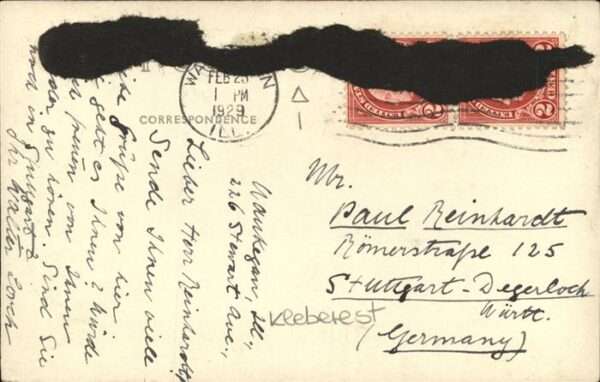 FEB 25
1 PM
1929
ILL.
CORRESPONDENCE
Waukegan, Ill.,
226 Stewart Ave.,
Lieber Herr Reinhardt,
Sende Ihnen viele
Grüße von hier
geht es Ihnen? Würde
freuen von Ihnen
zu hören. Sind Sie
noch in Stuttgart?
Ihr Walter Lorch
Mr.
Paul Reinhardt
Römerstraße 125
Stuttgart-Degerloch
Württ.
(Germany)
Kleberest
2 CENTS 2
2